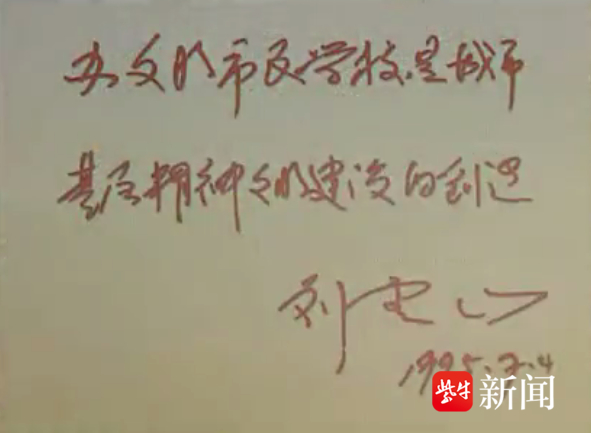 办文明市民学校,是城市
基层精神文明建设的创造
刘云山
1995.2.4
紫牛新闻